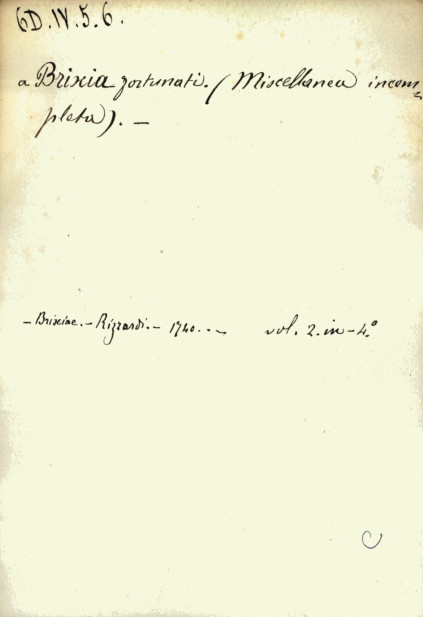 6D.IV.5.6.
a Brixia fortunati. (Miscellanea incom-
pleta). —
– Brixiae. – Rizzardi. – 1740. . – vol. 2. in – 4°